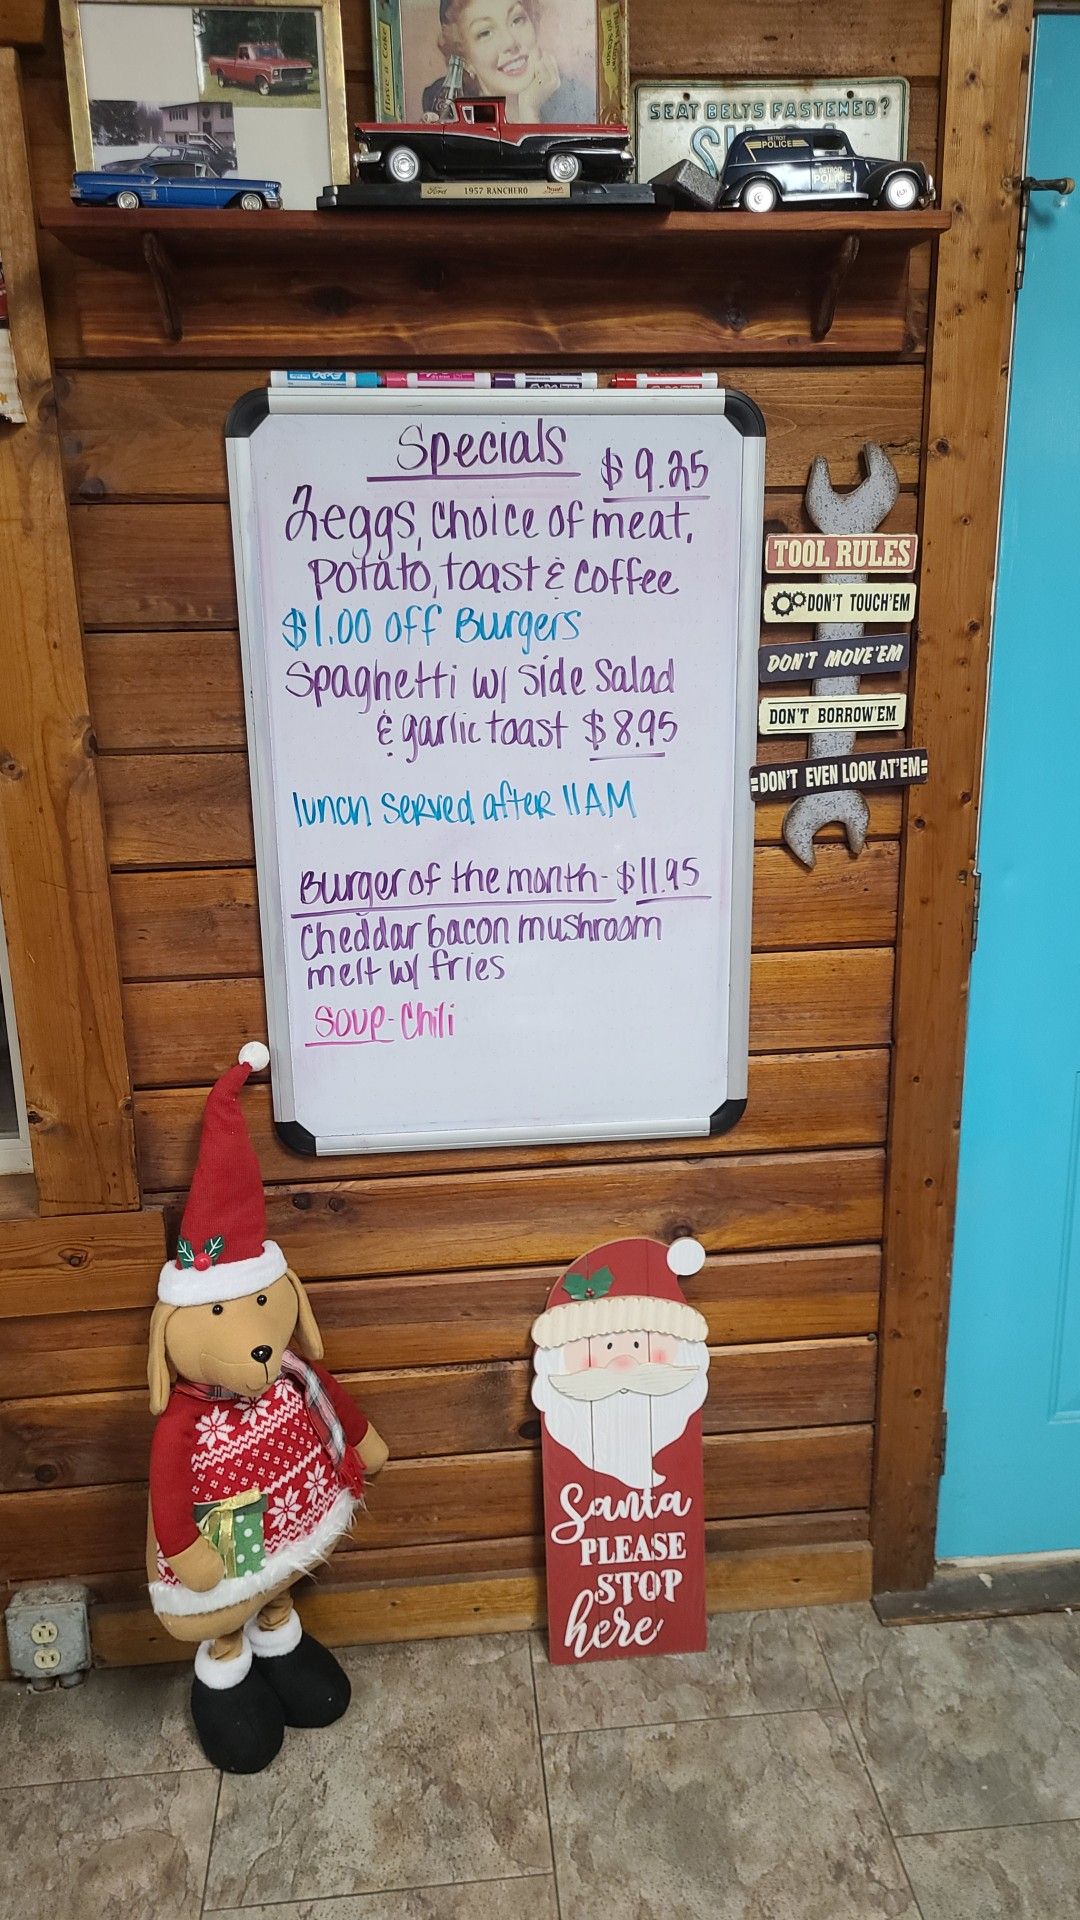 Have a Coke
SEAT BELTS FASTENED?
DETROIT
POLICE
DETROIT
POLICE
Ford 1957 RANCHERO
EXPO
Specials
$9.25
2 eggs, choice of meat,
potato, toast & coffee
$1.00 off Burgers
Spaghetti w/ side salad
& garlic toast $8.95
lunch served after 11AM
Burger of the month - $11.95
Cheddar bacon mushroom
melt w/ fries
Soup - Chili
TOOL RULES
DON'T TOUCH'EM
DON'T MOVE'EM
DON'T BORROW'EM
DON'T EVEN LOOK AT'EM
Santa
PLEASE
STOP
here